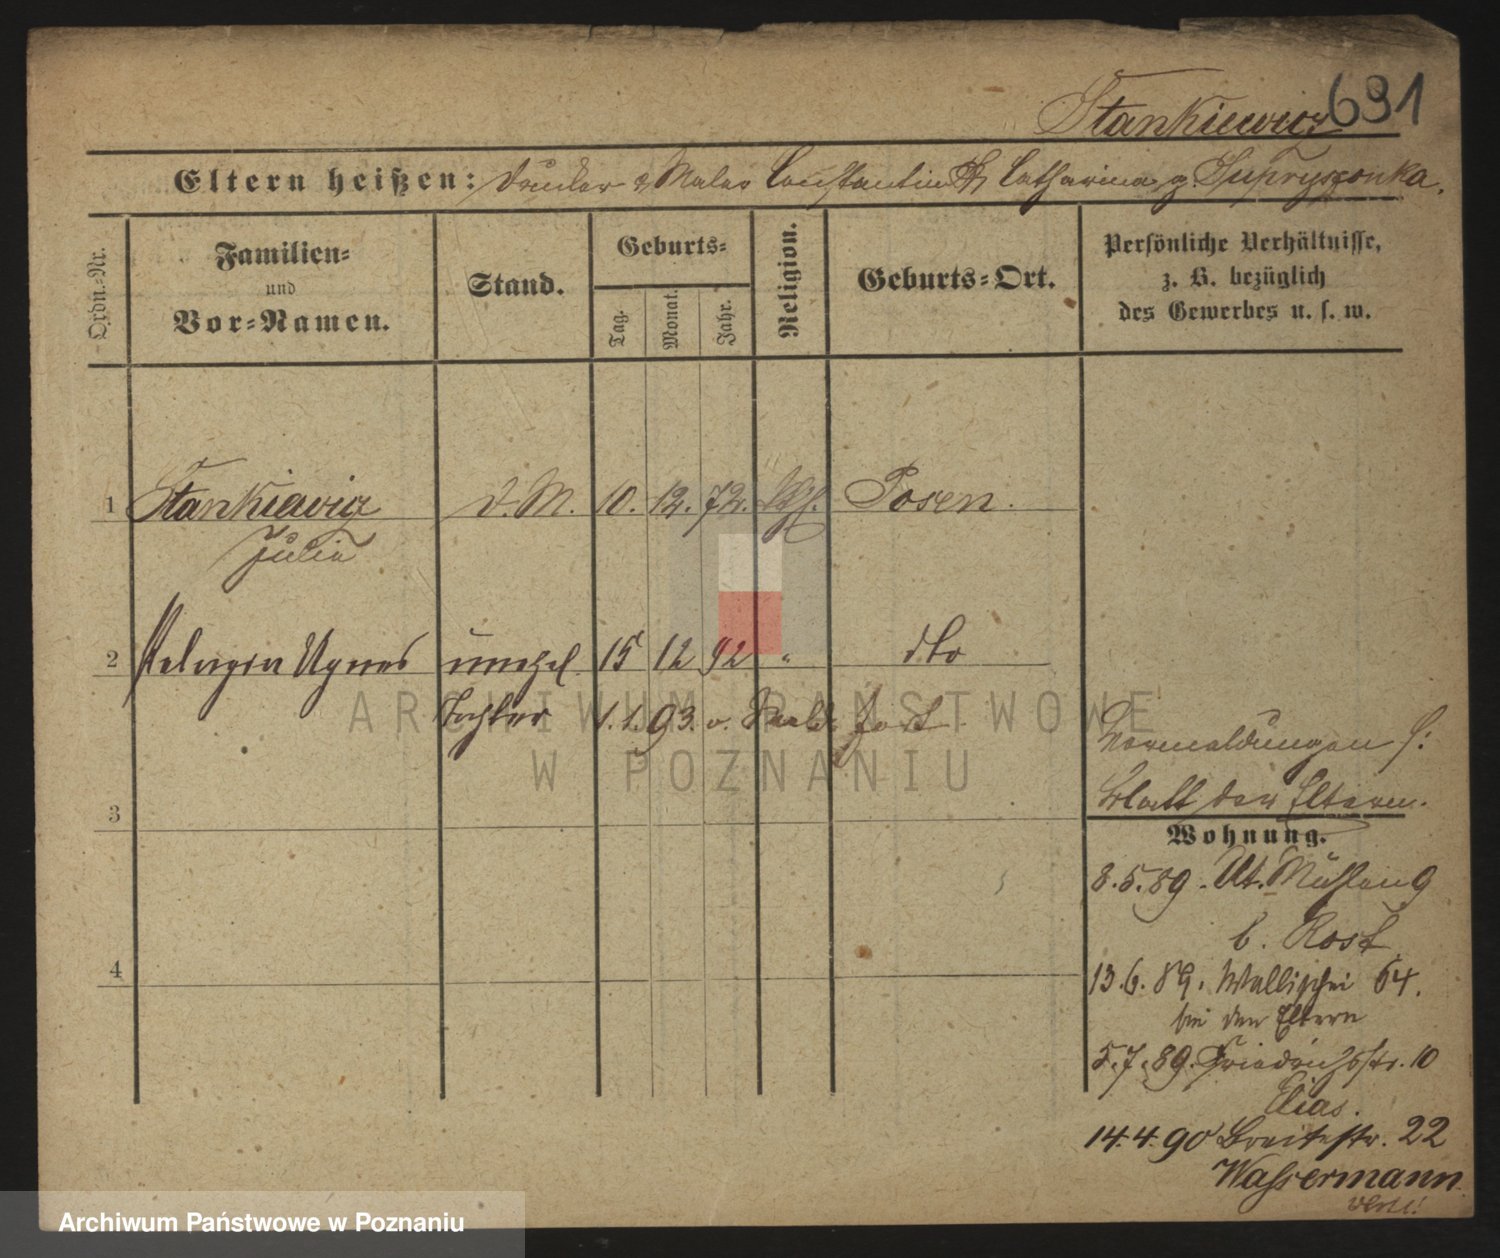 Stankiewicz 691
Eltern heißen: Drucker & Maler Constantin & Catharina g. Supryszonka.
Ordn.-Nr.
Familien-
und
Vor-Namen.
Stand.
Geburts-
Tag.
Monat.
Jahr.
Religion.
Geburts-Ort.
Persönliche Verhältnisse,
z. B. bezüglich
des Gewerbes u. s. w.
1 Stankiewicz D. M. 10. 12. 72. kth. Posen.
Julia
2 Pelagia Agnes unehel. 15 12 92 " dto
Tochter 1. 1. 93. fort
Vormeldungen s:
Blatt der Eltern.
3
Wohnung.
8.5.89. Mühlen 9
b. Rost
4
13.6.89. Wallischei 64.
bei den Eltern
5.7.89. Friedrichstr. 10
Elias.
14.4.90 Breitestr. 22
Wassermann
ARCHIWUM PAŃSTWOWE
W POZNANIU
Archiwum Państwowe w Poznaniu